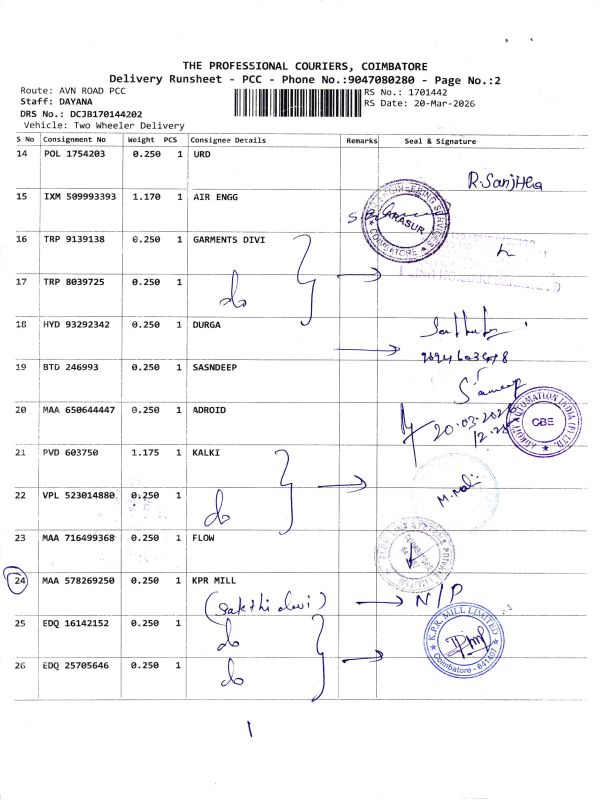 THE PROFESSIONAL COURIERS, COIMBATORE
Delivery Runsheet - PCC - Phone No.:9047080280 - Page No.:2
Route: AVN ROAD PCC
Staff: DAYANA
DRS No.: DCJB170144202
Vehicle: Two Wheeler Delivery
RS No.: 1701442
RS Date: 20-Mar-2026
S No Consignment No Weight PCS Consignee Details Remarks Seal & Signature
14 POL 1754203 0.250 1 URD
R.Sanjhea
15 IXM 509993393 1.170 1 AIR ENGG
ENGINEERING SERVICES ARASUR COIMBATORE
16 TRP 9139138 0.250 1 GARMENTS DIVI
17 TRP 8039725 0.250 1
do
18 HYD 93292342 0.250 1 DURGA
19 BTD 246993 0.250 1 SASNDEEP
20 MAA 650644447 0.250 1 ADROID
20.03.202
12.28
AUTOMATION INDIA (P) LTD. CBE
21 PVD 603750 1.175 1 KALKI
M.Mali
22 VPL 523014880 0.250 1
do
23 MAA 716499368 0.250 1 FLOW
24 MAA 578269250 0.250 1 KPR MILL
(Sakthi devi) N/P
25 EDQ 16142152 0.250 1
do
K.P.R. MILL LIMITED Coimbatore - 641407
26 EDQ 25705646 0.250 1
do